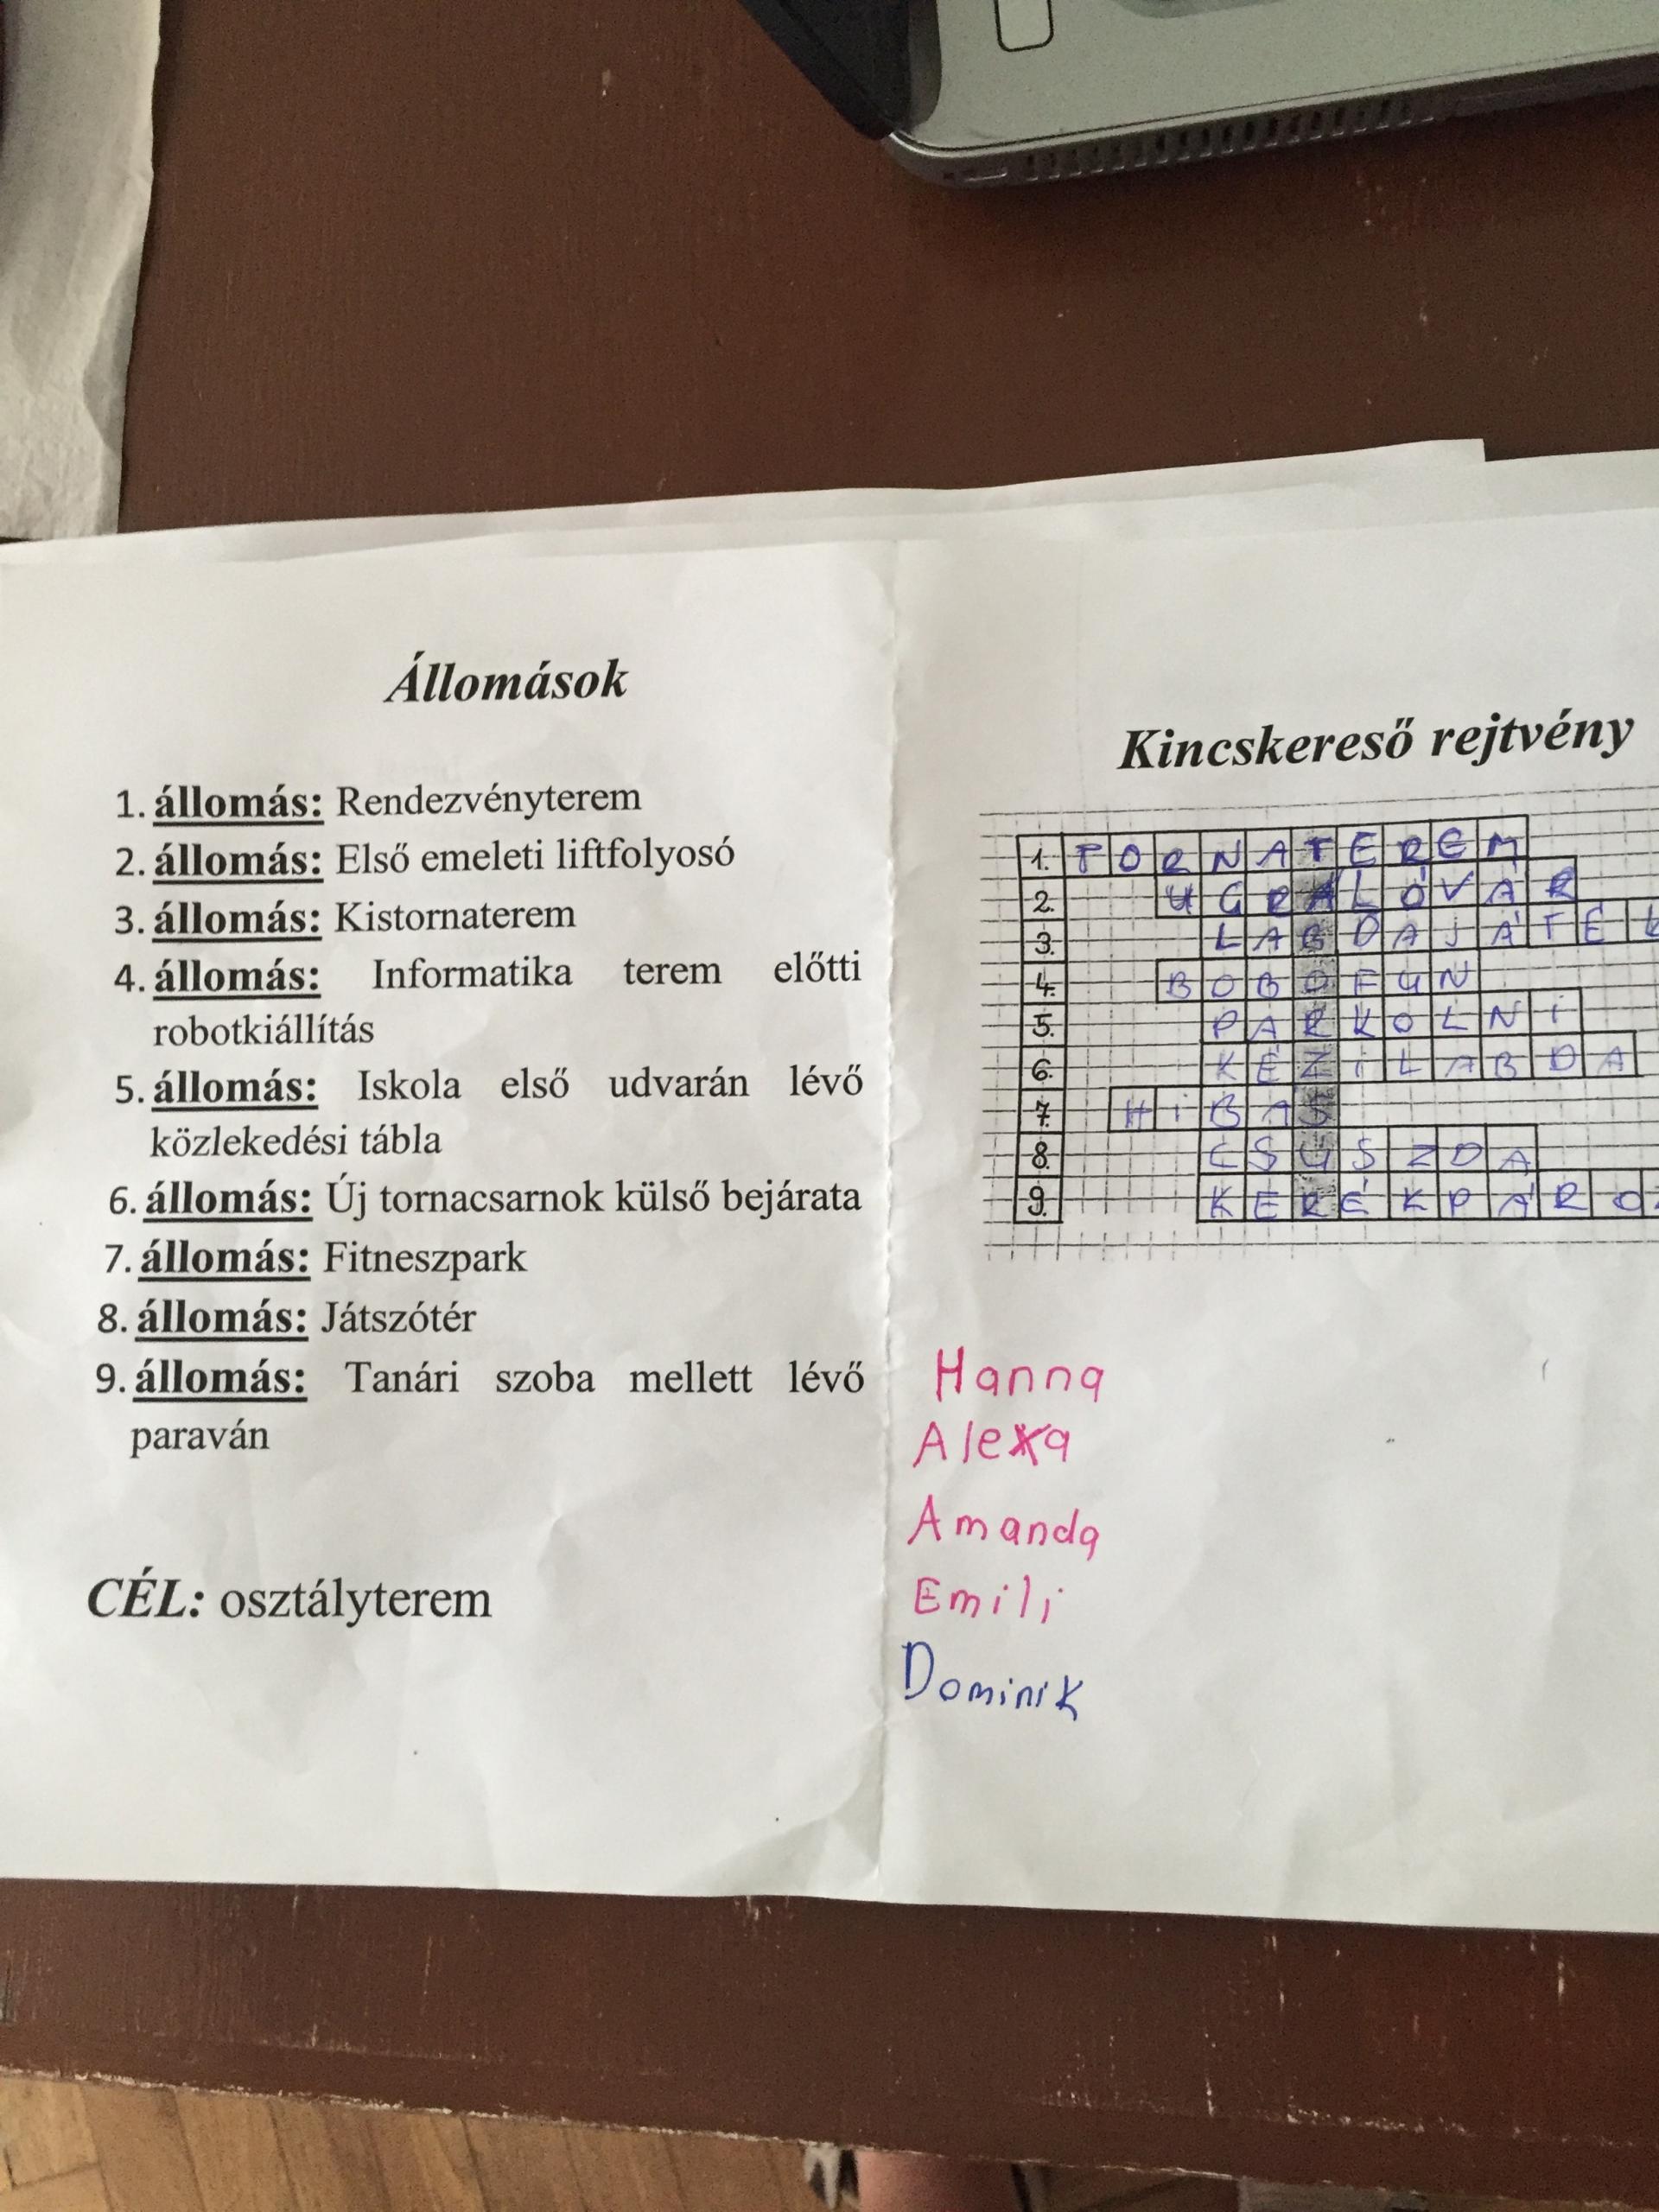 Állomások
1. állomás: Rendezvényterem
2. állomás: Első emeleti liftfolyosó
3. állomás: Kistornaterem
4. állomás: Informatika terem előtti
robotkiállítás
5. állomás: Iskola első udvarán lévő
közlekedési tábla
6. állomás: Új tornacsarnok külső bejárata
7. állomás: Fitneszpark
8. állomás: Játszótér
9. állomás: Tanári szoba mellett lévő
paraván
CÉL: osztályterem
Kincskereső rejtvény
1. TORNATEREM
2. UGRÁLÓVÁR
3. LABDAJÁTÉK
4. BOBOFUN
5. PARKOLNI
6. KÉZILABDA
7. HIBÁS
8. CSÚSZDA
9. KERÉKPÁRO
Hanna
Alexa
Amanda
Emili
Dominik